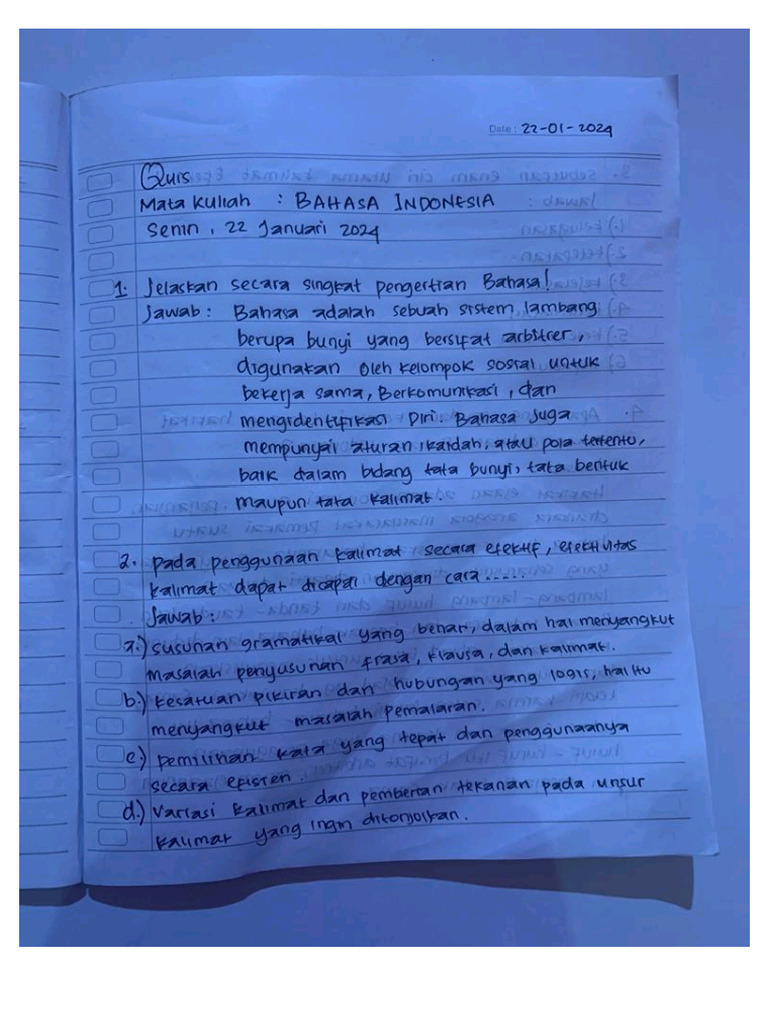 Date : 22-01-2024
Quis
Mata Kuliah : BAHASA INDONESIA
Senin, 22 Januari 2024
1. Jelaskan secara singkat pengertian Bahasa!
Jawab: Bahasa adalah sebuah sistem lambang
berupa bunyi yang bersifat arbitrer,
digunakan oleh kelompok sosial untuk
bekerja sama, Berkomunikasi, dan
mengidentifikasi Diri. Bahasa Juga
mempunyai aturan, kaidah, atau pola tertentu,
baik dalam bidang tata bunyi, tata bentuk
maupun tata kalimat.
2. pada penggunaan kalimat secara efektif, efektivitas
kalimat dapat dicapai dengan cara.....
Jawab:
a.) susunan gramatikal yang benar, dalam hal menyangkut
masalah penyusunan frasa, klausa, dan kalimat.
b.) kesatuan pikiran dan hubungan yang logis, hal itu
menyangkut masalah pemalaran.
c.) pemilihan kata yang tepat dan penggunaanya
secara efisien.
d.) variasi kalimat dan pemberian tekanan pada unsur
kalimat yang ingin ditonjolkan.